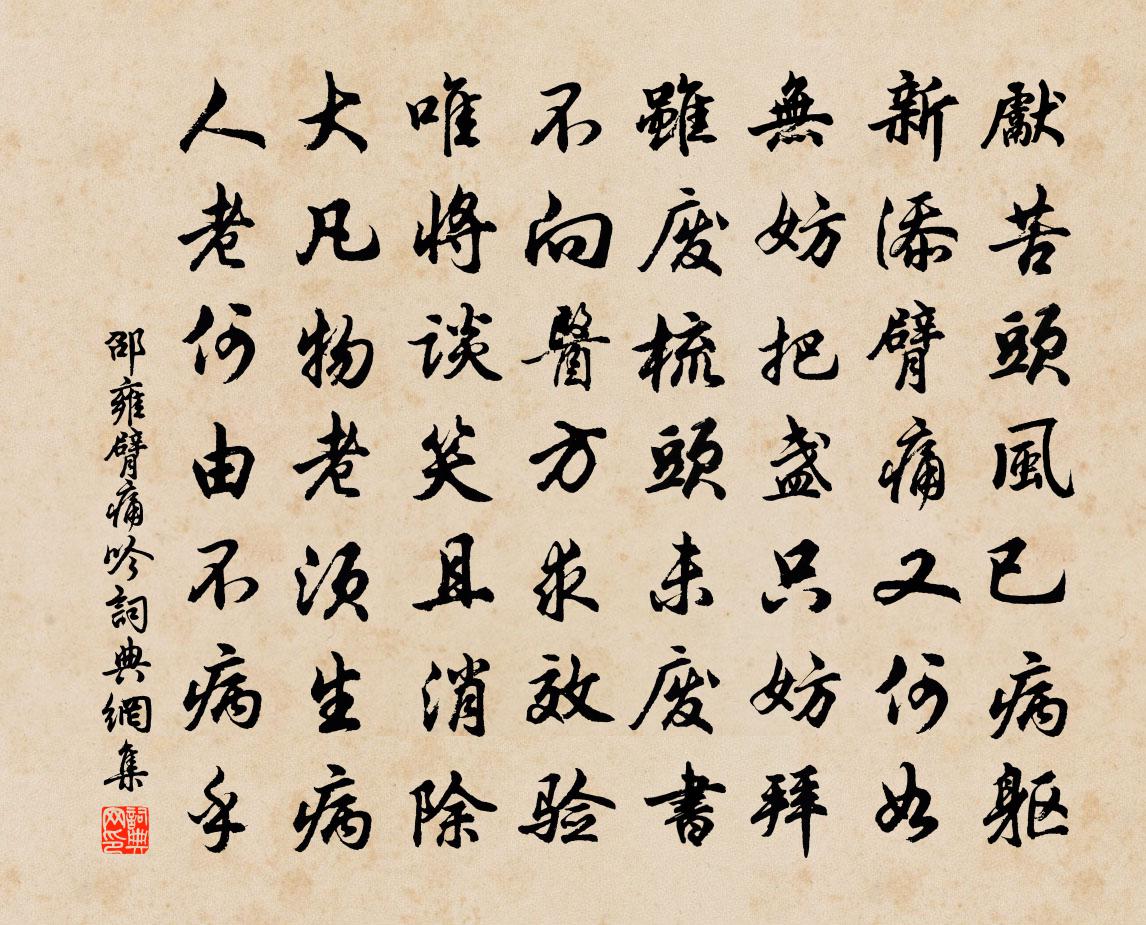 獻苦頭風已病軀
新添臂痛又何如
無妨把盞只妨拜
雖废梳頭未废書
不向醫方求效验
唯將談笑且消除
大凡物老須生病
人老何由不病乎
邵雍臂痛吟詞典網集
詞典网印